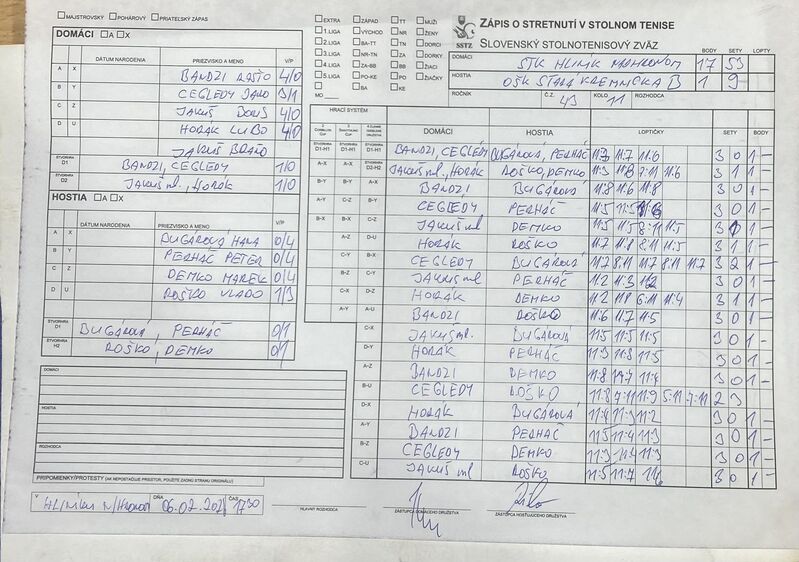 MAJSTROVSKÝ POHÁROVÝ PRIATEĽSKÝ ZÁPAS
DOMÁCI A X
DÁTUM NARODENIA PRIEZVISKO A MENO V/P
A X BANDZI LASŤO 4/0
B Y CEGLÉDY JANO 3/1
C Z JAKUŠ BORIS 4/0
D U HORÁK ĽUBO 4/0
JAKUŠ BRAŇO
ŠTVORHRA D1 BANDZI, CEGLÉDY 1/0
ŠTVORHRA D2 JAKUŠ ml., HORÁK 1/0
HOSTIA A X
DÁTUM NARODENIA PRIEZVISKO A MENO V/P
A X BUGÁROVÁ HANA 0/4
B Y PERHÁČ PETER 0/4
C Z DEMKO MAREK 0/4
D U ROŠKO VLADO 1/3
ŠTVORHRA D1 BUGÁROVÁ, PERHÁČ 0/1
ŠTVORHRA H2 ROŠKO, DEMKO 0/1
DOMÁCI
HOSTIA
ROZHODCA
PRIPOMIENKY/PROTESTY (AK NEPOSTAČUJE PRIESTOR, POUŽITE ZADNÚ STRANU ORIGINÁLU)
V DŇA 06.02. ČAS 17:30
HLAVNÝ ROZHODCA ZÁSTUPCA DOMÁCEHO DRUŽSTVA ZÁSTUPCA HOSŤUJÚCEHO DRUŽSTVA
EXTRA ZÁPAD TT MUŽI
1.LIGA VÝCHOD NR ŽENY
2.LIGA BA-TT TN DORCI
3.LIGA NR-TN ZA DORKY
4.LIGA ZA-BB BB ŽIACI
5.LIGA PO-KE PO ŽIAČKY
BA KE
MO
SSTZ
ZÁPIS O STRETNUTÍ V STOLNOM TENISE
SLOVENSKÝ STOLNOTENISOVÝ ZVÄZ
BODY SETY LOPTY
DOMÁCI STK HLINÍK NAD HRONOM 17 53
HOSTIA OŠK STARÁ KREMNIČKA B 1 9 -
ROČNÍK Č.Z. 43 KOLO 11 ROZHODCA
HRACÍ SYSTÉM
DOMÁCI HOSTIA LOPTIČKY SETY BODY
D1-H1 D1-H1 D1-H1 BANDZI, CEGLÉDY BUGÁROVÁ, PERHÁČ 11:9 11:7 11:6 3 0 1 -
A-X D2-H2 JAKUŠ ml., HORÁK ROŠKO, DEMKO 11:3 11:8 7:11 11:6 3 1 1 -
B-Y B-Y A-X BANDZI BUGÁROVÁ 11:8 11:6 11:8 3 0 1 -
A-Y C-Z B-Y CEGLÉDY PERHÁČ 11:5 11:5 11:6 3 0 1 -
B-X B-X C-Z JAKUŠ ml DEMKO 11:5 11:5 8:11 11:5 3 1 -
A-Z D-U HORÁK ROŠKO 11:7 11:8 8:11 11:5 3 1 1 -
C-Y B-X CEGLÉDY BUGÁROVÁ 11:7 8:11 11:7 8:11 11:7 3 2 1 -
B-Z C-Y JAKUŠ ml PERHÁČ 11:2 11:3 11:2 3 0 1 -
C-X D-Z HORÁK DEMKO 11:2 11:8 6:11 11:4 3 1 1 -
A-Y A-U BANDZI ROŠKO 11:6 11:7 11:5 3 0 1 -
C-X JAKUŠ ml. BUGÁROVÁ 11:5 11:5 11:5 3 0 1 -
D-Y HORÁK PERHÁČ 11:3 11:8 11:5 3 0 1 -
A-Z BANDZI DEMKO 11:8 11:7 11:4 3 0 1 -
B-U CEGLÉDY ROŠKO 11:8 7:11 11:9 5:11 7:11 2 3
D-X HORÁK BUGÁROVÁ 11:4 11:3 11:2 3 0 1 -
A-Y BANDZI PERHÁČ 11:5 11:4 11:3 3 0 1 -
B-Z CEGLÉDY DEMKO 11:3 11:4 11:3 3 0 1 -
C-U JAKUŠ ml ROŠKO 11:5 11:7 3 0 1 -